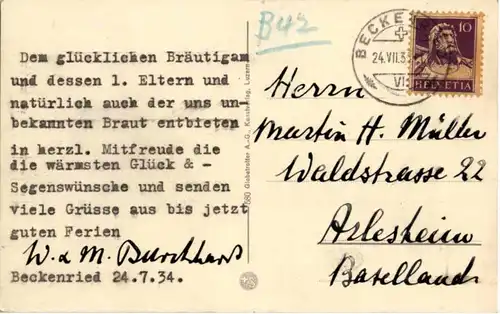 B42
Dem glücklichen Bräutigam
und dessen l. Eltern und
natürlich auch der uns un-
bekannten Braut entbieten
in herzl. Mitfreude die
die wärmsten Glück & -
Segenswünsche und senden
viele Grüsse aus bis jetzt
guten Ferien
W. & M. Burckhardt
Beckenried 24.7.34.
Globetrotter A.-G., Kunstverlag, Luzern
BECKE
24.VII.3
VI
10
HELVETIA
Herrn
Martin H. Müller
Waldstrasse 22
Arlesheim
Baselland